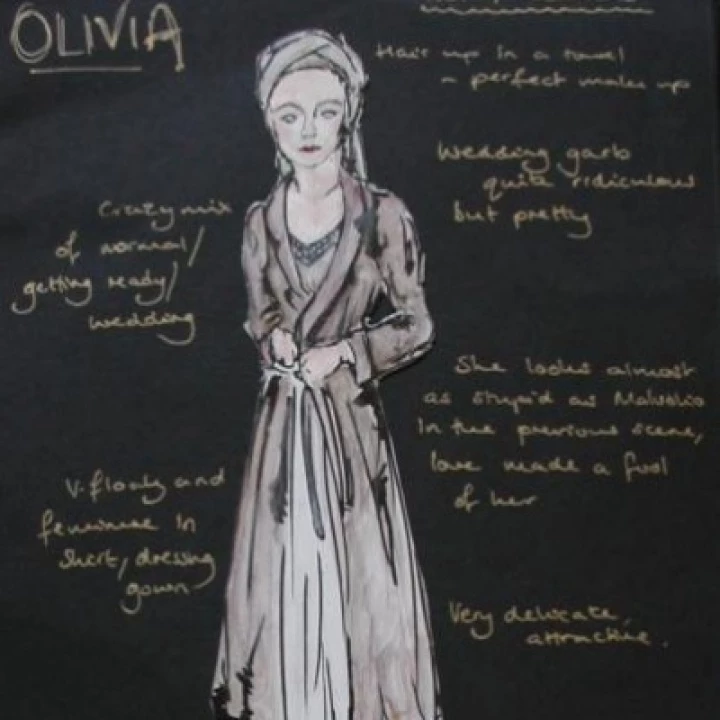 OLIVIA
Hair up in a towel
- perfect make up
Wedding garb
quite ridiculous
but pretty
Crazy mix
of normal/
getting ready/
wedding
She looks almost
as stupid as Malvolio
in the previous scene,
love made a fool
of her
V. floaty and
feminine in
skirt, dressing
gown
Very delicate,
attractive.